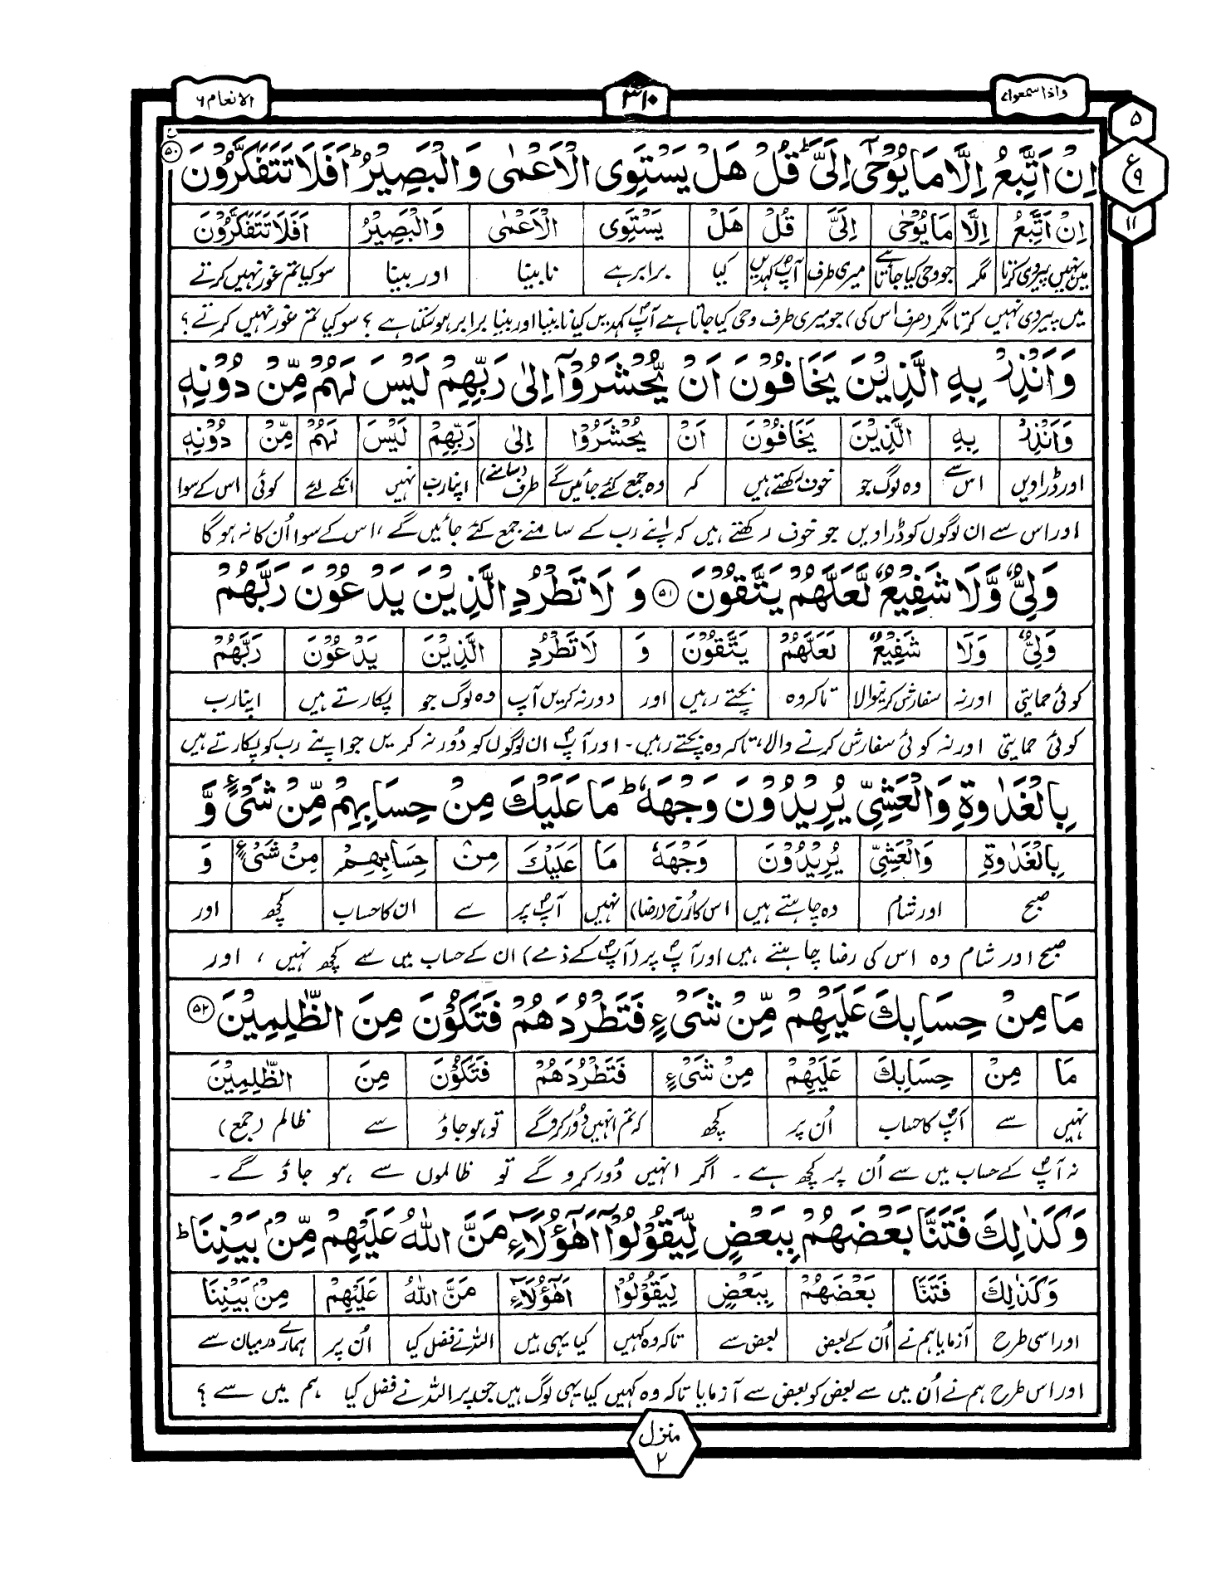 واذا سمعوا ٧
٣١٠
الانعام ٦
٥
ع
٩
١١
اِنْ اَتَّبِعُ اِلَّا مَا يُوْحٰٓى اِلَىَّ ؕ قُلْ هَلْ يَسْتَوِى الْاَعْمٰى وَالْبَصِيْرُ ؕ اَفَلَا تَتَفَكَّرُوْنَ ۝٥٠
اِنْ اَتَّبِعُ اِلَّا مَا يُوْحٰى اِلَىَّ قُلْ هَلْ يَسْتَوِى الْاَعْمٰى وَالْبَصِيْرُ اَفَلَا تَتَفَكَّرُوْنَ
میں نہیں پیروی کرتا مگر جو وحی کیا جاتا ہے میری طرف آپؐ کہدیں کیا برابر ہے نابینا اور بینا سو کیا تم غور نہیں کرتے
میں پیروی نہیں کرتا مگر (صرف اس کی) جو میری طرف وحی کیا جاتا ہے آپؐ کہدیں کیا نابینا اور بینا برابر ہو سکتا ہے ؟ سو کیا تم غور نہیں کرتے ؟
وَاَنْذِرْ بِهِ الَّذِيْنَ يَخَافُوْنَ اَنْ يُّحْشَرُوْٓا اِلٰى رَبِّهِمْ لَيْسَ لَهُمْ مِّنْ دُوْنِهٖ
وَاَنْذِرْ بِهِ الَّذِيْنَ يَخَافُوْنَ اَنْ يُّحْشَرُوْا اِلٰى رَبِّهِمْ لَيْسَ لَهُمْ مِّنْ دُوْنِهٖ
اور ڈراویں اس سے وہ لوگ جو خوف رکھتے ہیں کہ وہ جمع کئے جائیں گے طرف (سامنے) اپنا رب نہیں انکے لئے کوئی اس کے سوا
اور اس سے ان لوگوں کو ڈراویں جو خوف رکھتے ہیں کہ اپنے رب کے سامنے جمع کئے جائیں گے، اس کے سوا اُن کا نہ ہو گا
وَلِىٌّ وَّلَا شَفِيْعٌ لَّعَلَّهُمْ يَتَّقُوْنَ ۝٥١ وَ لَا تَطْرُدِ الَّذِيْنَ يَدْعُوْنَ رَبَّهُمْ
وَلِىٌّ وَلَا شَفِيْعٌ لَعَلَّهُمْ يَتَّقُوْنَ وَ لَا تَطْرُدِ الَّذِيْنَ يَدْعُوْنَ رَبَّهُمْ
کوئی حمایتی اور نہ سفارش کرنیوالا تاکہ وہ بچتے رہیں اور دور نہ کریں آپ وہ لوگ جو پکارتے ہیں اپنا رب
کوئی حمایتی اور نہ کوئی سفارش کرنے والا، تاکہ وہ بچتے رہیں۔ اور آپؐ ان لوگوں کو دُور نہ کریں جو اپنے رب کو پکارتے ہیں
بِالْغَدٰوةِ وَالْعَشِىِّ يُرِيْدُوْنَ وَجْهَهٗ ؕ مَا عَلَيْكَ مِنْ حِسَابِهِمْ مِّنْ شَىْءٍ وَّ
بِالْغَدٰوةِ وَالْعَشِىِّ يُرِيْدُوْنَ وَجْهَهٗ مَا عَلَيْكَ مِنْ حِسَابِهِمْ مِنْ شَىْءٍ وَ
صبح اور شام وہ چاہتے ہیں اس کا رُخ (رضا) نہیں آپؐ پر سے ان کا حساب کچھ اور
صبح اور شام وہ اس کی رضا چاہتے ہیں اور آپؐ پر (آپؐ کے ذمے) ان کے حساب میں سے کچھ نہیں ، اور
مَا مِنْ حِسَابِكَ عَلَيْهِمْ مِّنْ شَىْءٍ فَتَطْرُدَهُمْ فَتَكُوْنَ مِنَ الظّٰلِمِيْنَ ۝٥٢
مَا مِنْ حِسَابِكَ عَلَيْهِمْ مِنْ شَىْءٍ فَتَطْرُدَهُمْ فَتَكُوْنَ مِنَ الظّٰلِمِيْنَ
نہیں سے آپؐ کا حساب اُن پر کچھ کہ تم انہیں دُور کرو گے تو ہو جاؤ سے ظالم (جمع)
نہ آپؐ کے حساب میں سے اُن پر کچھ ہے ۔ اگر انہیں دُور کرو گے تو ظالموں سے ہو جاؤ گے ۔
وَكَذٰلِكَ فَتَنَّا بَعْضَهُمْ بِبَعْضٍ لِّيَقُوْلُوْٓا اَهٰٓؤُلَآءِ مَنَّ اللّٰهُ عَلَيْهِمْ مِّنْۢ بَيْنِنَا ؕ
وَكَذٰلِكَ فَتَنَّا بَعْضَهُمْ بِبَعْضٍ لِيَقُوْلُوْا اَهٰٓؤُلَآءِ مَنَّ اللّٰهُ عَلَيْهِمْ مِنْۢ بَيْنِنَا
اور اسی طرح آزمایا ہم نے اُن کے بعض بعض سے تاکہ وہ کہیں کیا یہی ہیں اللہ نے فضل کیا اُن پر ہمارے درمیان سے
اور اس طرح ہم نے اُن میں سے بعض کو بعض سے آزمایا تاکہ وہ کہیں کیا یہی لوگ ہیں جن پر اللہ نے فضل کیا ہم میں سے ؟
منزل
٢